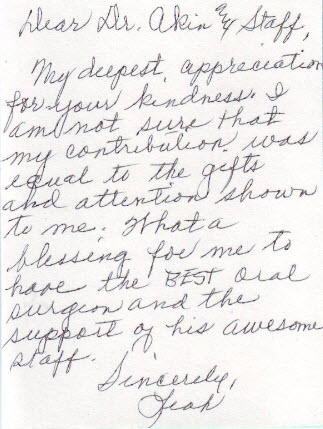 Dear Dr. Akin & Staff,
My deepest appreciation
for your kindness. I
am not sure that
my contribution was
equal to the gifts
and attention shown
to me. What a
blessing for me to
have the BEST oral
surgeon and the
support of his awesome
staff.
Sincerely,
Leah